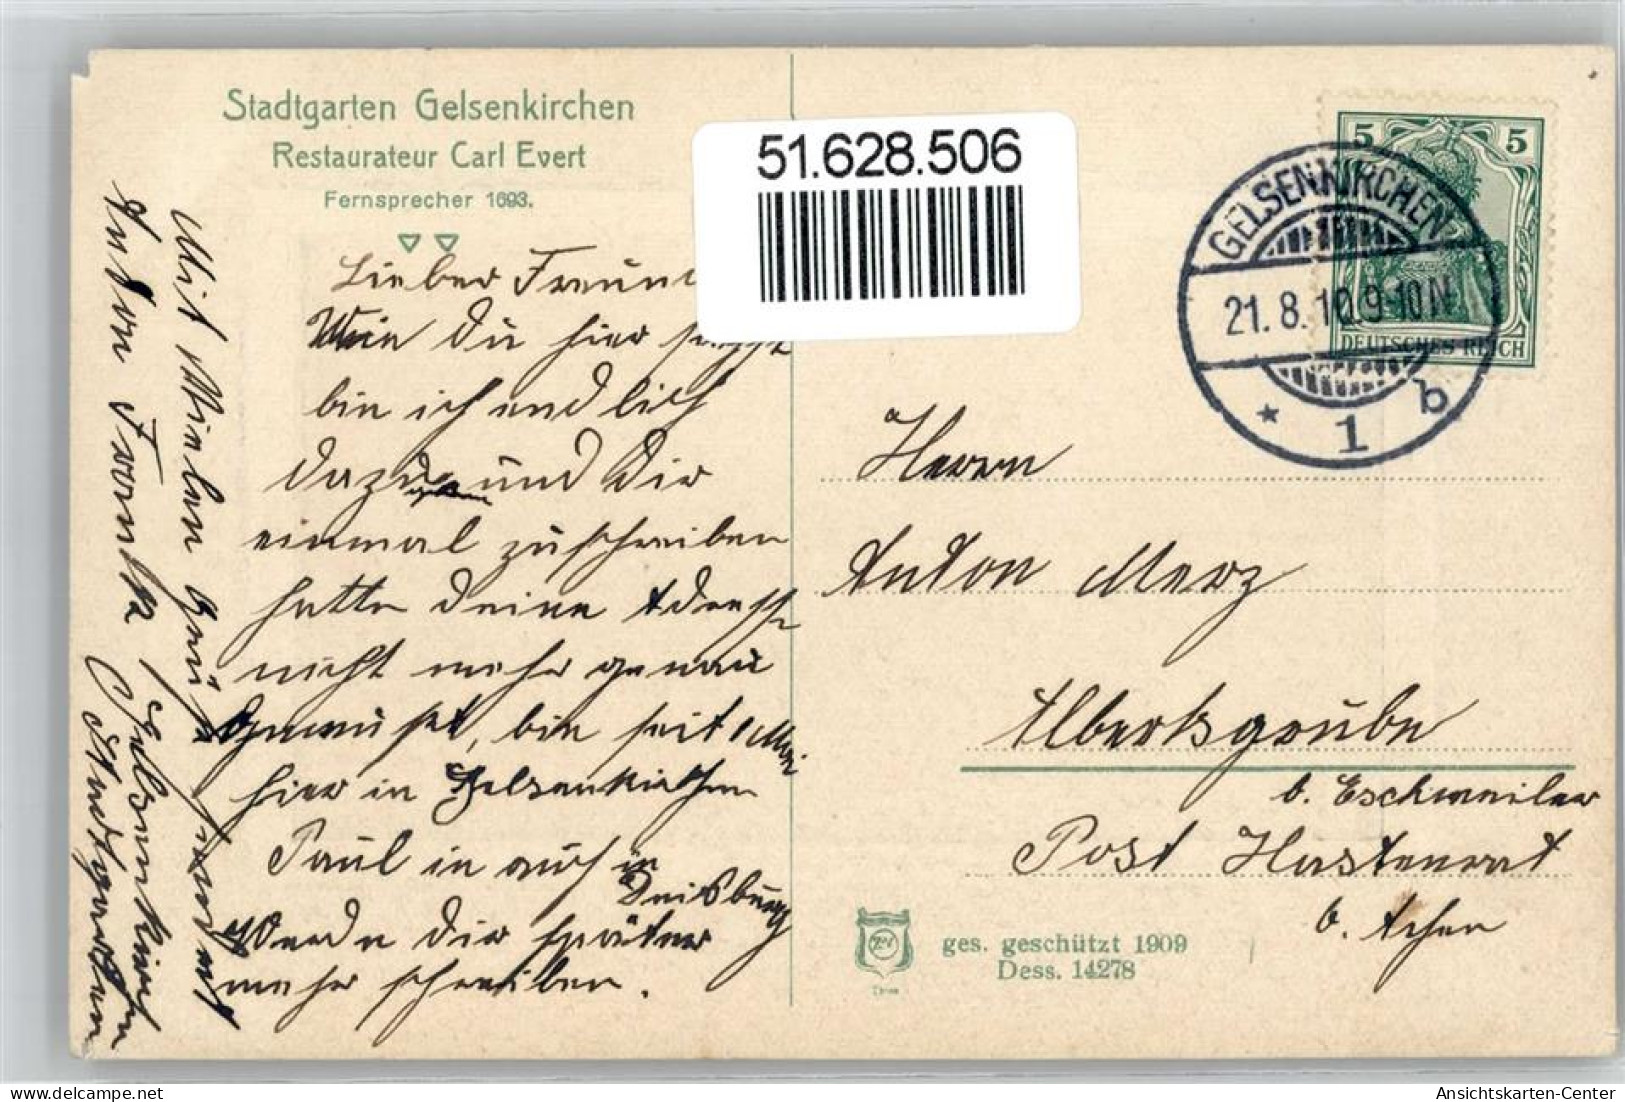 Stadtgarten Gelsenkirchen
Restaurateur Carl Evert
Fernsprecher 1693.
51.628.506
5 5
DEUTSCHES REICH
GELSENKIRCHEN
21.8.10.9-10N
* 1 b
Lieber Freund
Wie Du hier siehst
bin ich endlich
dazu und Dir
einmal zuschreiben
hatte deine Adresse
nicht mehr genau
gewußt, bin seit 1 Mai
hier in Gelsenkirchen
Paul in auch in
Duisburg
Werde dir später
mehr schreiben.
Mit Vielen
Gelsenkirchen
Stadtgarten
Herrn
Anton Merz
Albertsgrube
b. Eschweiler
Post Hastenrat
b. Achen
ges. geschützt 1909
Dess. 14278
Ansichtskarten-Center